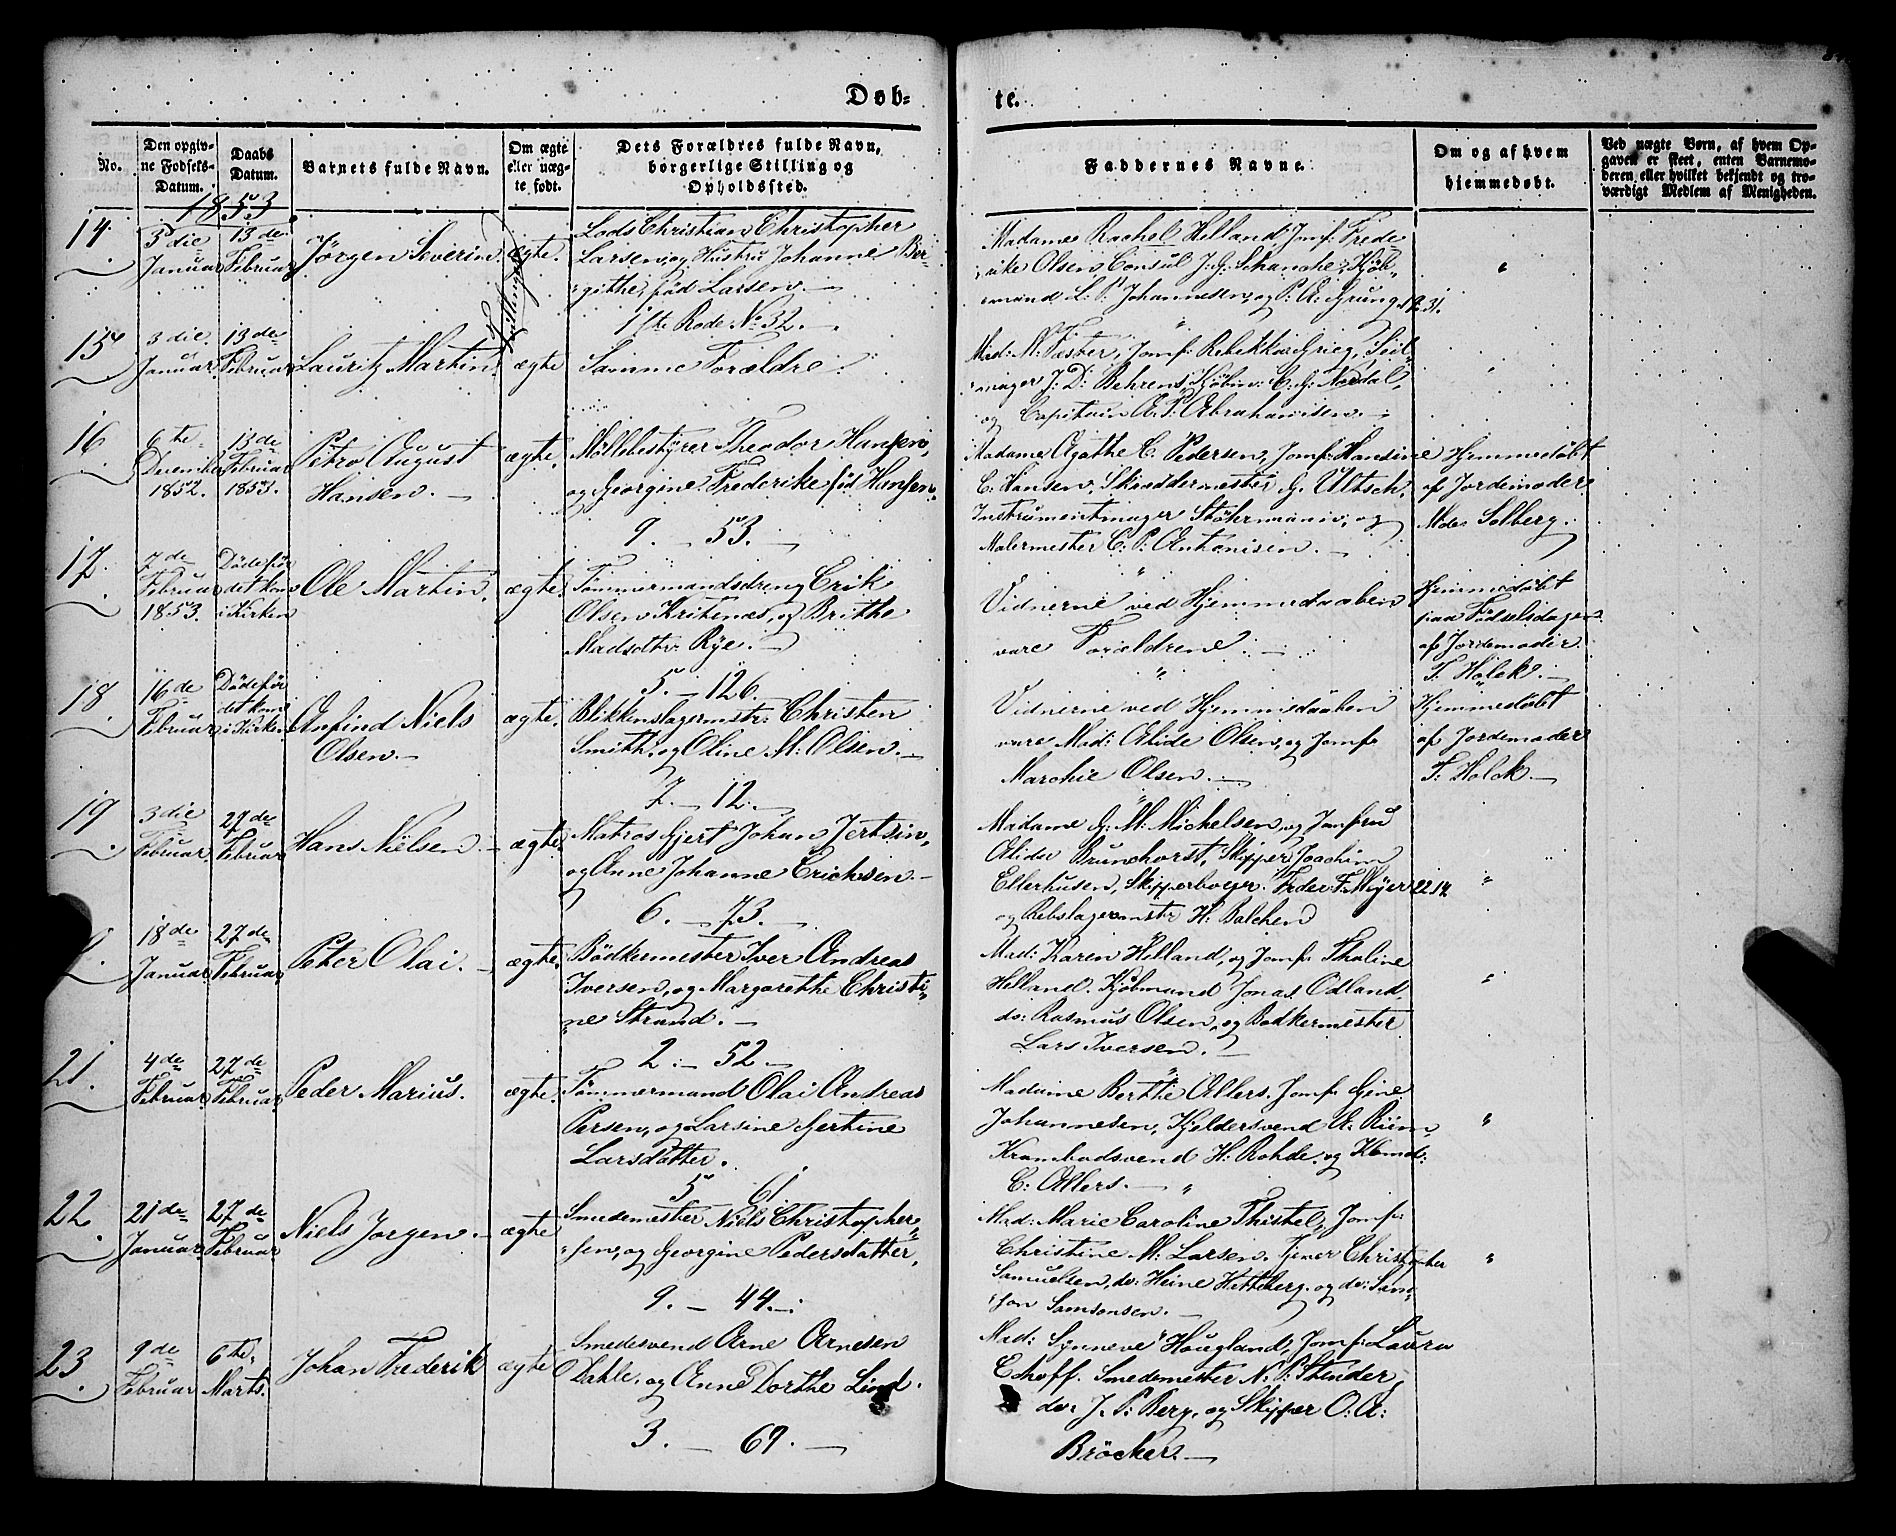 Døb-
te.
No.
Den opgiv-
ne Fødsels-
Datum.
Daabs
Datum.
Barnets fulde Navn.
Om ægte
eller uæg-
te født.
Dets Forældres fulde Navn,
borgerlige Stilling og
Opholdssted.
Faddernes Navne.
Om og af hvem
hjemmedøbt.
Ved uægte Børn, af hvem Op-
gaven er skeet, enten Barnemo-
deren eller hvilket bekjendt og tro-
værdigt Medlem af Menigheden.
1853.
14.
3die
Januar
13de
Februar
Jørgen Severin
Tvillinger
ægte.
Lods Christian Christopher
Larsen, og Hustru Johanne Bir-
githe, fød Larsen.
1ste Rode No 32.
Madame Rachel Helland, Jomf: Frede-
rike Olsen, Consul J. G. Schanche, Kjøb-
mænd L. P. Johannesen, og P. A. Grung. 1931.
"
15
3die
Januar.
13de
Februar
Lauritz Martin.
ægte
Samme Forældre.
Mad: M: Fæster, Jomf: Rebekka Grieg, Seil-
mager J. D: Behrens, Kjøbm: C. G. Nordal,
og Capitain A. P. Abrahamsen.
"
16
6te
Decemb
1852.
13de
Februar
1853.
Petro August
Hansen.
ægte.
Møllebestyrer Theodor Hansen,
og Georgine Frederike fød Hansen.
9. 53.
Madame Agathe C. Pedersen, Jomf: Hansine
C: Hansen, Skræddermester G. Ultsch,
Instrumentmager Støhrmann, og
Malermester C. P. Antonisen.
Hjemmedøbt
af Jordemoder
Mde Solberg.
17.
7de
Februar
1853.
Døde før
det kom
i Kirken
Ole Martin.
ægte
Tømmermandsdreng Erik
Olsen Kritenæs, og Brithe
Madsdtr Rye.
5. 126.
Vidnerne ved Hjemmedaaben
vare Forældrene.
Hjemmedøbt
paa Fødselsdagen
af Jordemoder
T. Holck.
18
16de
Februar
Døde før
det kom
i Kirken
Anfind Niels
Olsen.
ægte.
Blikkenslagermstr: Christen
Smith, og Oline M: Olsen.
7. 12.
Vidnerne ved Hjemmedaaben
vare Mad: Alide Olsen, og Jomf:
Marchie Olsen.
Hjemmedøbt
af Jordemoder
T. Holck.
19
3die
Februar.
27de
Februar
Hans Nielsen.
ægte
Matros Gjert Johan Jertsin,
og Anne Johanne Erichsen.
6. 73.
Madame G. M: Michelsen, og Jomfru
Alide Brunchorst, Skipper Joachim
Ellerhusen, Skipperborger Feder F. Meyer 2214.
og Rebslagermstr H: Balchen
"
18de
Januar
27de
Februar
Peter Olai.
ægte.
Bødkermester Iver Andreas
Iversen, og Margarethe Christi-
ne Strand.
2. 52.
Mad: Karen Helland, og Jomf: Thaline
Helland. Kjøbmand Jonas Odland,
do: Rasmus Olsen, og Bødkermester
Lars Iversen.
"
21.
4de
Februar.
27de
Februar
Peder Marius.
ægte.
Tømmermand Olai Andreas
Persen, og Larsine Gertine
Larsdatter.
5 61.
Madame Berthe Allers. Jomf: Gine
Johannesen, Kjeldersvend A. Riim,
Krambodsvend H. Rohde, og Kbmd:
C: Allers.
"
22.
21de
Januar
27de
Februar
Niels Jørgen.
ægte
Smedemester Niels Christopher-
sen, og Georgine Pedersdatter,
9. 44.
Mad: Marie Caroline Thistel, Jomf:
Christine M: Larsen. Tjener Christopher
Samuelsen, do: Heine Hetteberg, og do: Sam-
son Samsonsen.
"
23
9de
Februar
6te
Marts.
Johan Frederik
ægte
Smedesvend Arne Arnesen
Dahle, og Anne Dorthe Lind.
3. 69.
Mad: Synneve Hougland, Jomf: Laura
Echoff. Smedemester N: P: Stender,
do: J. P: Berg, og Skipper O: A:
Brøcker.